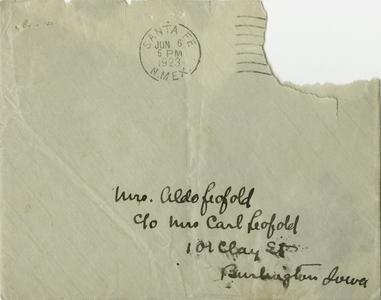 SANTA FE
JUN 6
5 PM
1923
N. MEX
Mrs. Aldo Leopold
c/o Mrs Carl Leopold
101 Clay St
Burlington Iowa